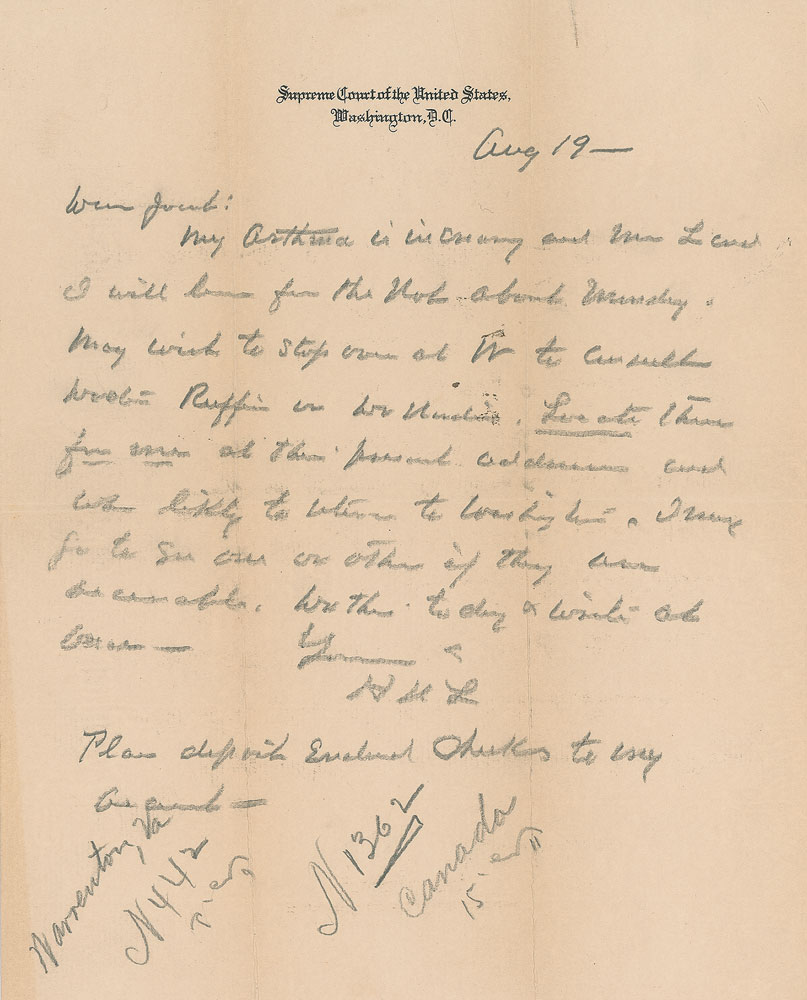 Supreme Court of the United States,
Washington, D.C.
Aug 19 —
Dear Jacob:
My Asthma is increasing and Mrs L and
I will leave for the Hot about Monday.
May wish to stop over at W to Consult
Doctor Ruffin or Dr . Locate them
for me at their present addresses and
when likely to return to Washington. I may
go to see one or other if they are
accessible. to day & write at
Once —
Yours
H H L
Please deposit Enclosed Checks to my
account —
Warrenton, Va
N 442
N 1362
Canada
15